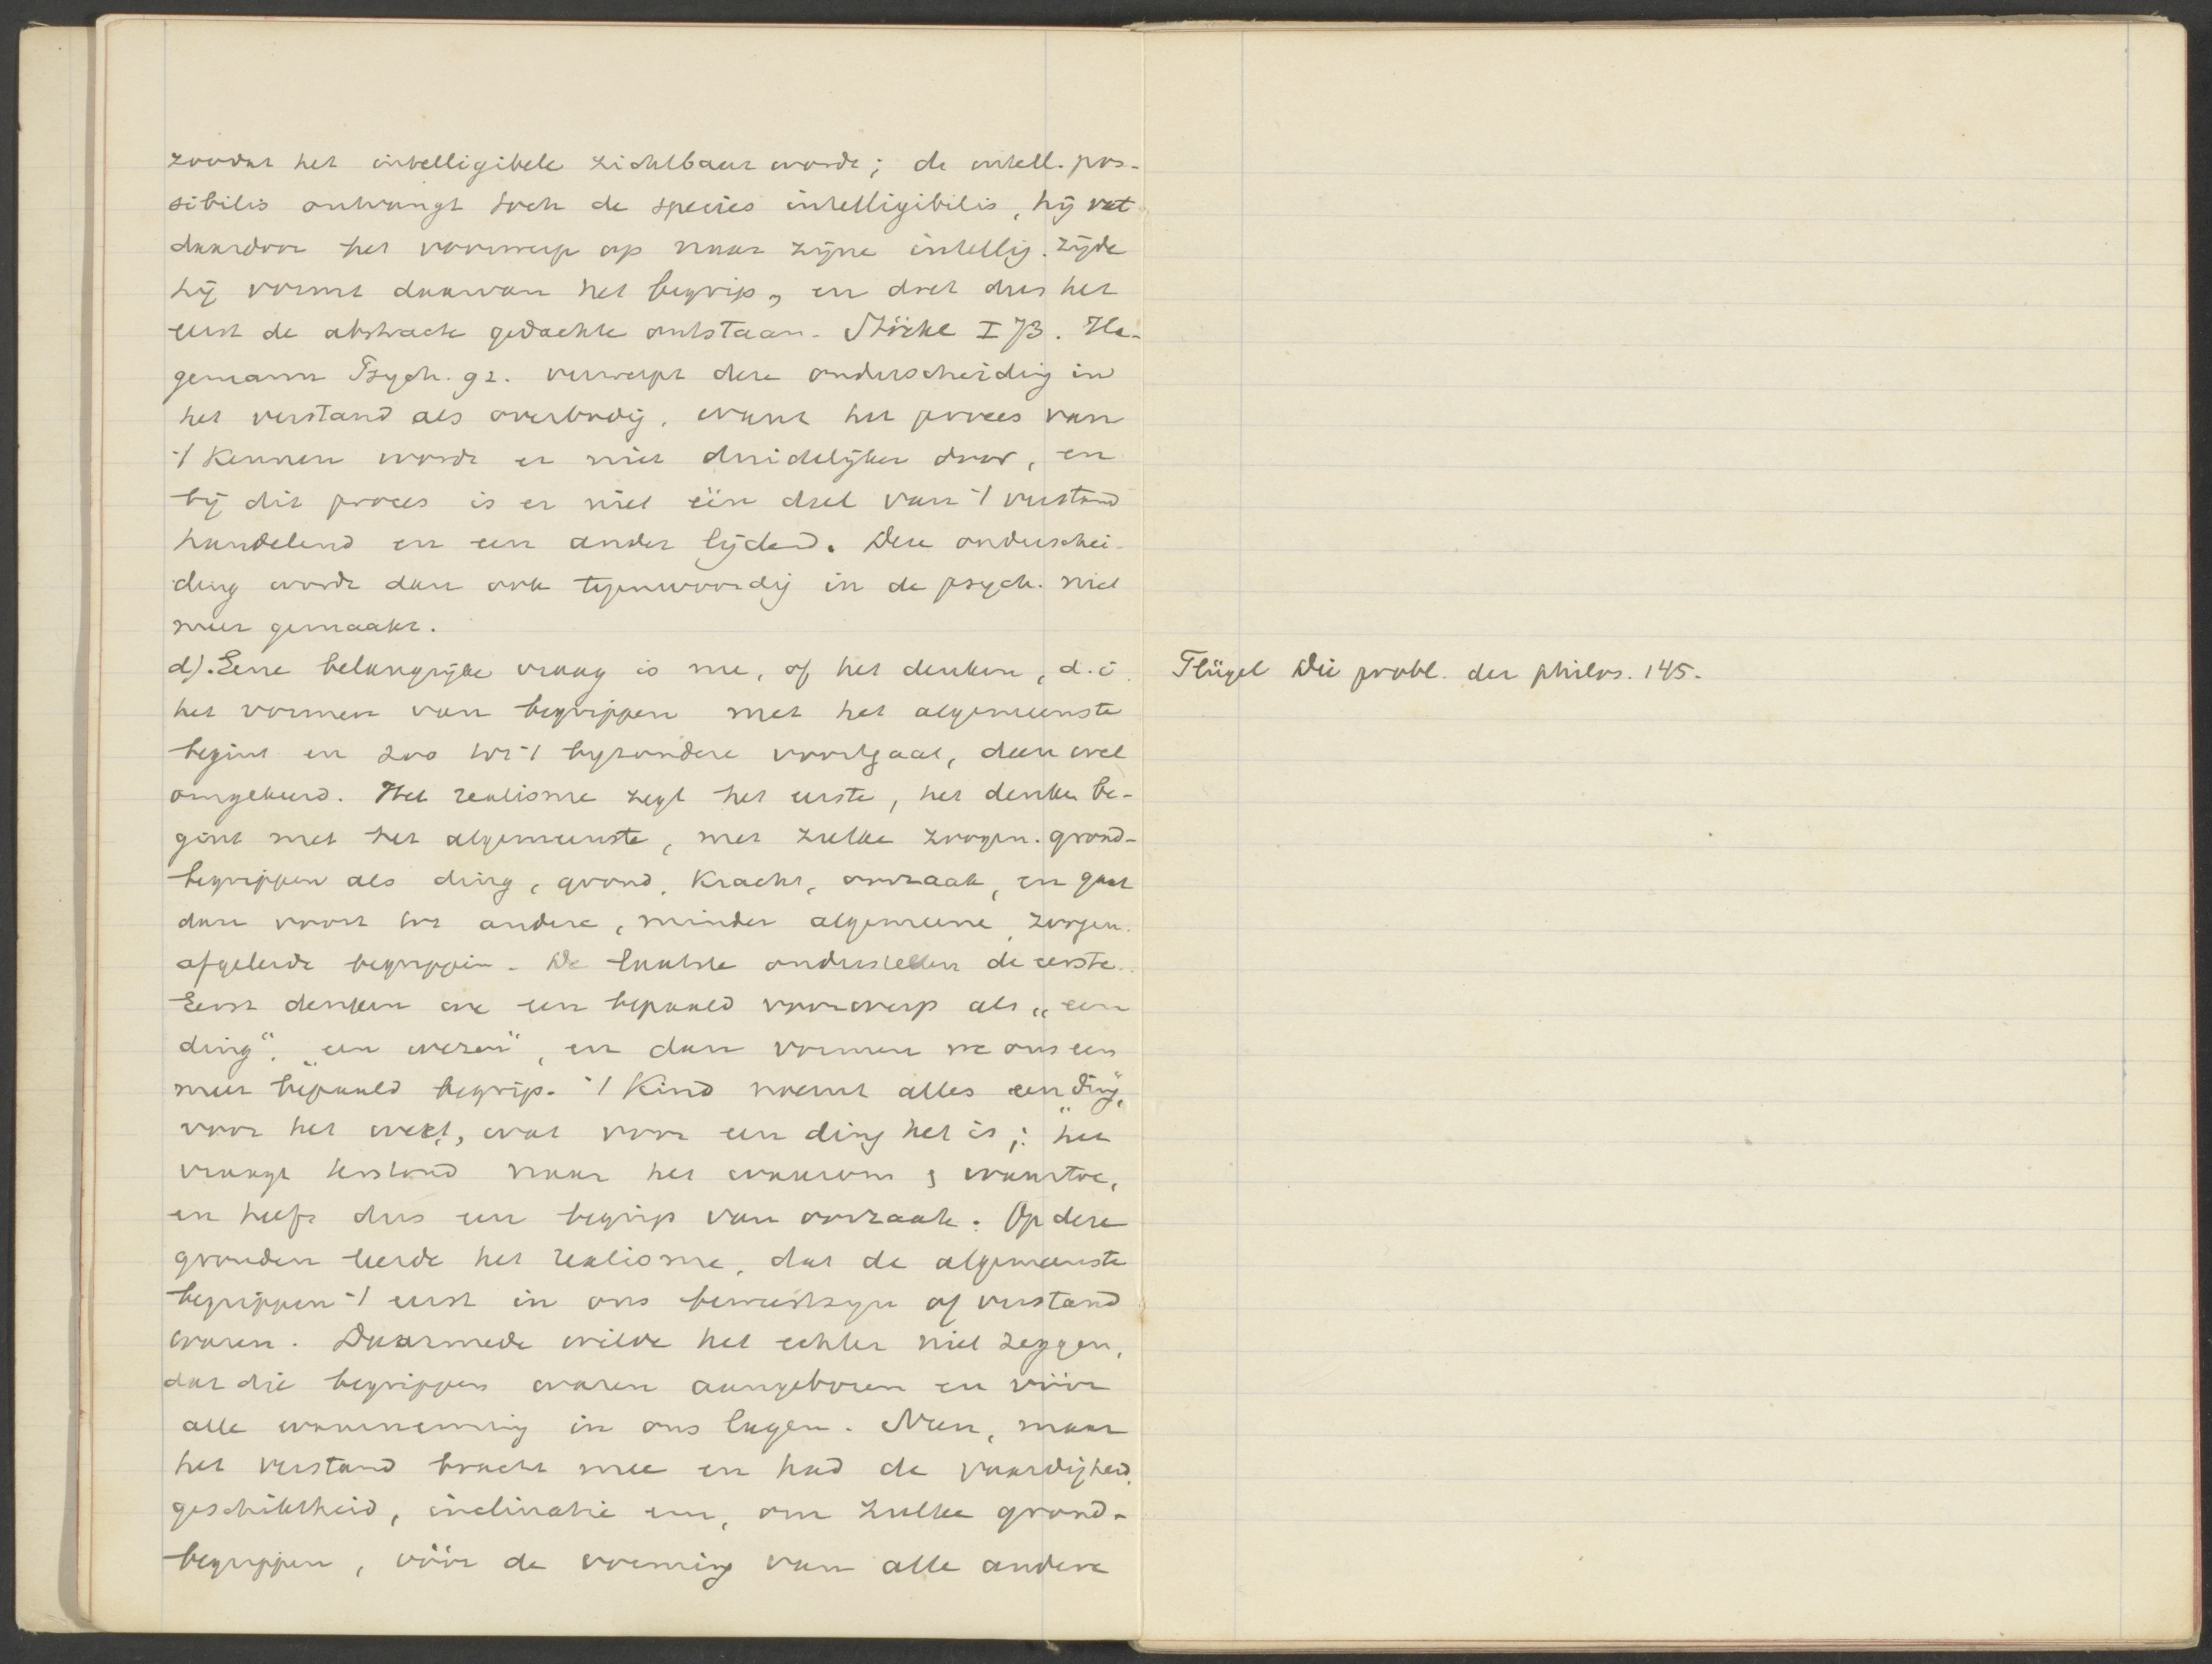 zoodat het intelligibele zichtbaar wordt; de intell. pos-
sibilis ontvangt toch de species intelligibilis, hij vat
daardoor het voorwerp op naar zijne intellig. zijde
hij vormt daarvan het begrip, en doet dus het
eerst de abstracte gedachte ontstaan. Stöckl I 73. Ha-
gemann Psych. 92. verwerpt deze onderscheiding in
het verstand als overbodig, want het proces van
't kennen wordt er niet duidelijker door, en
bij dit proces is er niet één deel van 't verstand
handelend en een ander lijdend. Deze onderschei-
ding wordt dan ook tegenwoordig in de psych. niet
meer gemaakt.
d). Eene belangrijke vraag is nu, of het denken, d.i.
het vormen van begrippen met het algemeenste
begint en zoo tot 't byzondere voortgaat, dan wel
omgekeerd. Het realisme zegt het eerste, het denken be-
gint met het algemeenste, met zulke zoogen. grond-
begrippen als ding, grond, kracht, oorzaak, en gaat
dan voort tot andere, minder algemeene, zoogen.
afgeleide begrippen. De laatste onderstellen de eerste.
Eerst denken we een bepaald voorwerp als „een
ding", „een wezen", en dan vormen we ons een
meer bepaald begrip. 't Kind noemt alles „een ding",
voor het weet, wat voor een ding het is; het
vraagt terstond naar het waarom & waartoe,
en heeft dus een begrip van oorzaak. Op deze
gronden leerde het realisme, dat de algemeenste
begrippen 't eerst in ons bewustzyn of verstand
waren. Daarmede wilde het echter niet zeggen,
dat die begrippen waren aangeboren en vóór
alle waarneming in ons lagen. Neen, maar
het verstand bracht mee en had de vaardigheid,
geschiktheid, inclinatie enz, om zulke grond-
begrippen, vóór de vorming van alle andere
Flügel Die probl. der philos. 145.